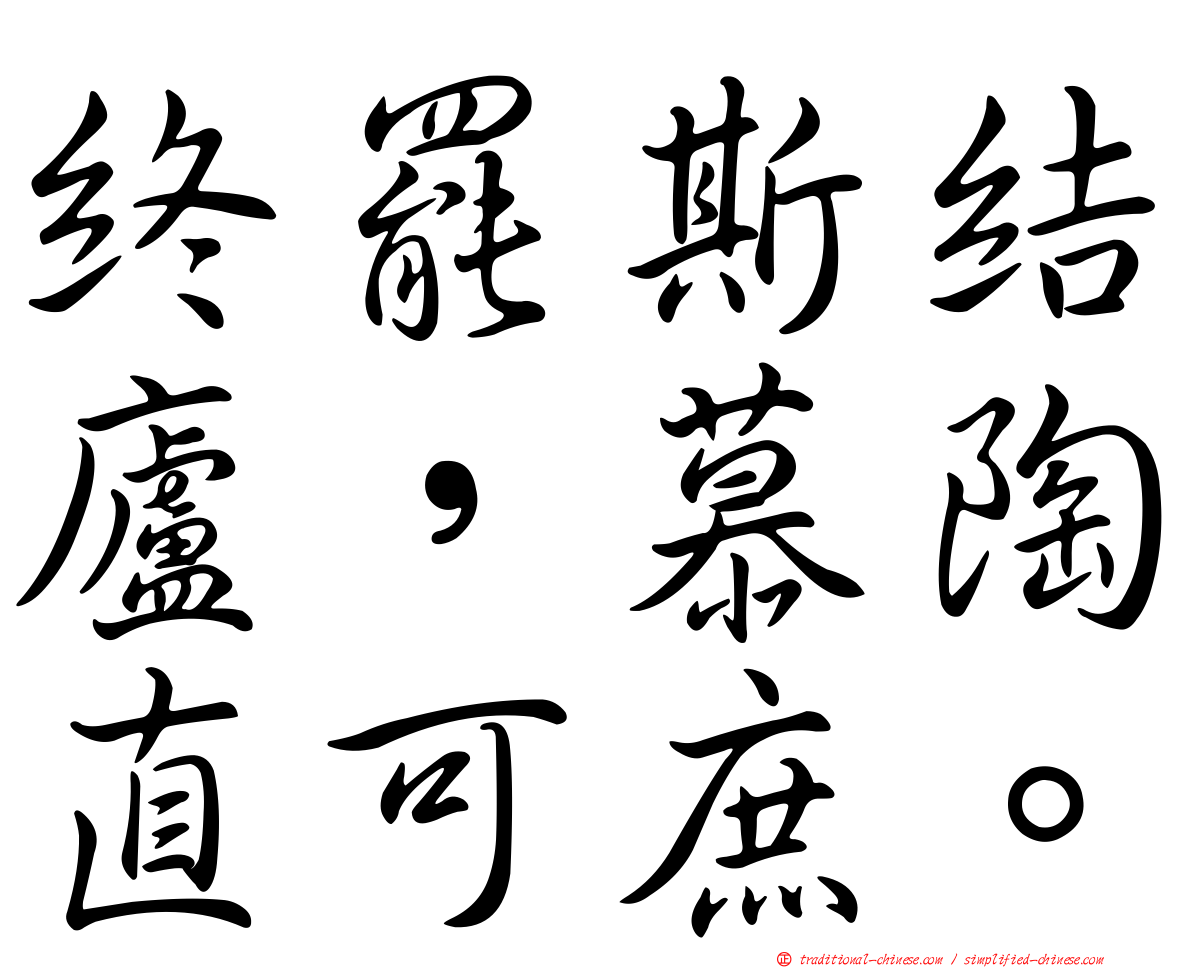 終罷斯結
廬，慕陶
直可庶。
㊣ traditional-chinese.com / simplified-chinese.com